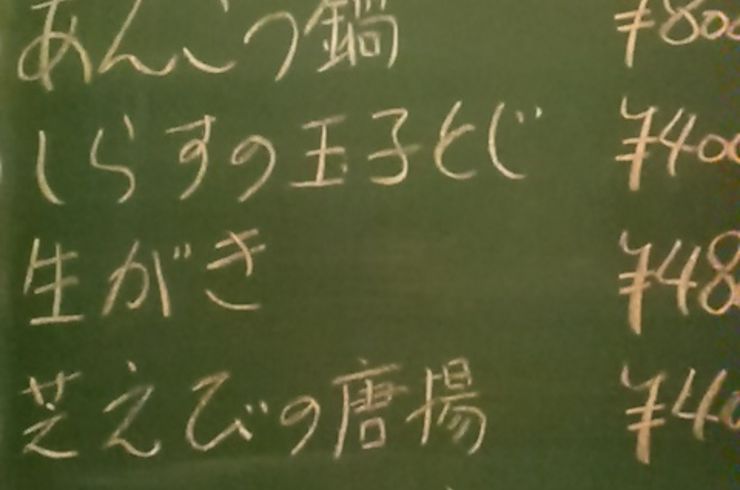 あんこう鍋 ¥800
しらすの玉子とじ ¥400
生がき ¥48
芝えびの唐揚 ¥40